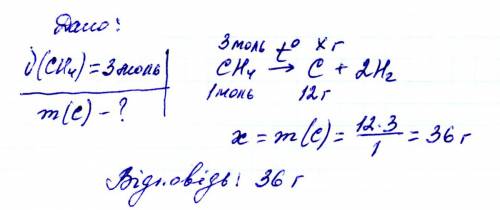 Дано:
ν(CH₄) = 3 моль
m(C) - ?
3 моль t° x г
CH₄ → C + 2H₂
1 моль 12 г
x = m(C) = 12·3/1 = 36 г
Відповідь: 36 г